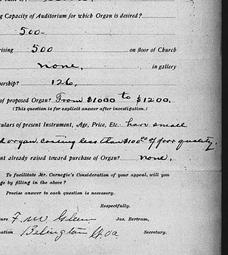 g Capacity of Auditorium for which Organ is desired?
500
rising 500 on floor of Church
none, in gallery
bership? 126.
of proposed Organ? From $1000 to $1200.
(This question is for explicit answer after investigation.)
culars of present Instrument, Age, Price, Etc. have small
organ, costing less than $100 of poor quality.
nt already raised toward purchase of Organ? none.
To facilitate Mr. Carnegie's Consideration of your appeal, will you
ge by filling in the above?
Precise answer to each question is necessary.
Respectfully,
Jas. Bertram,
Secretary.
ure F. M.
ation Belington